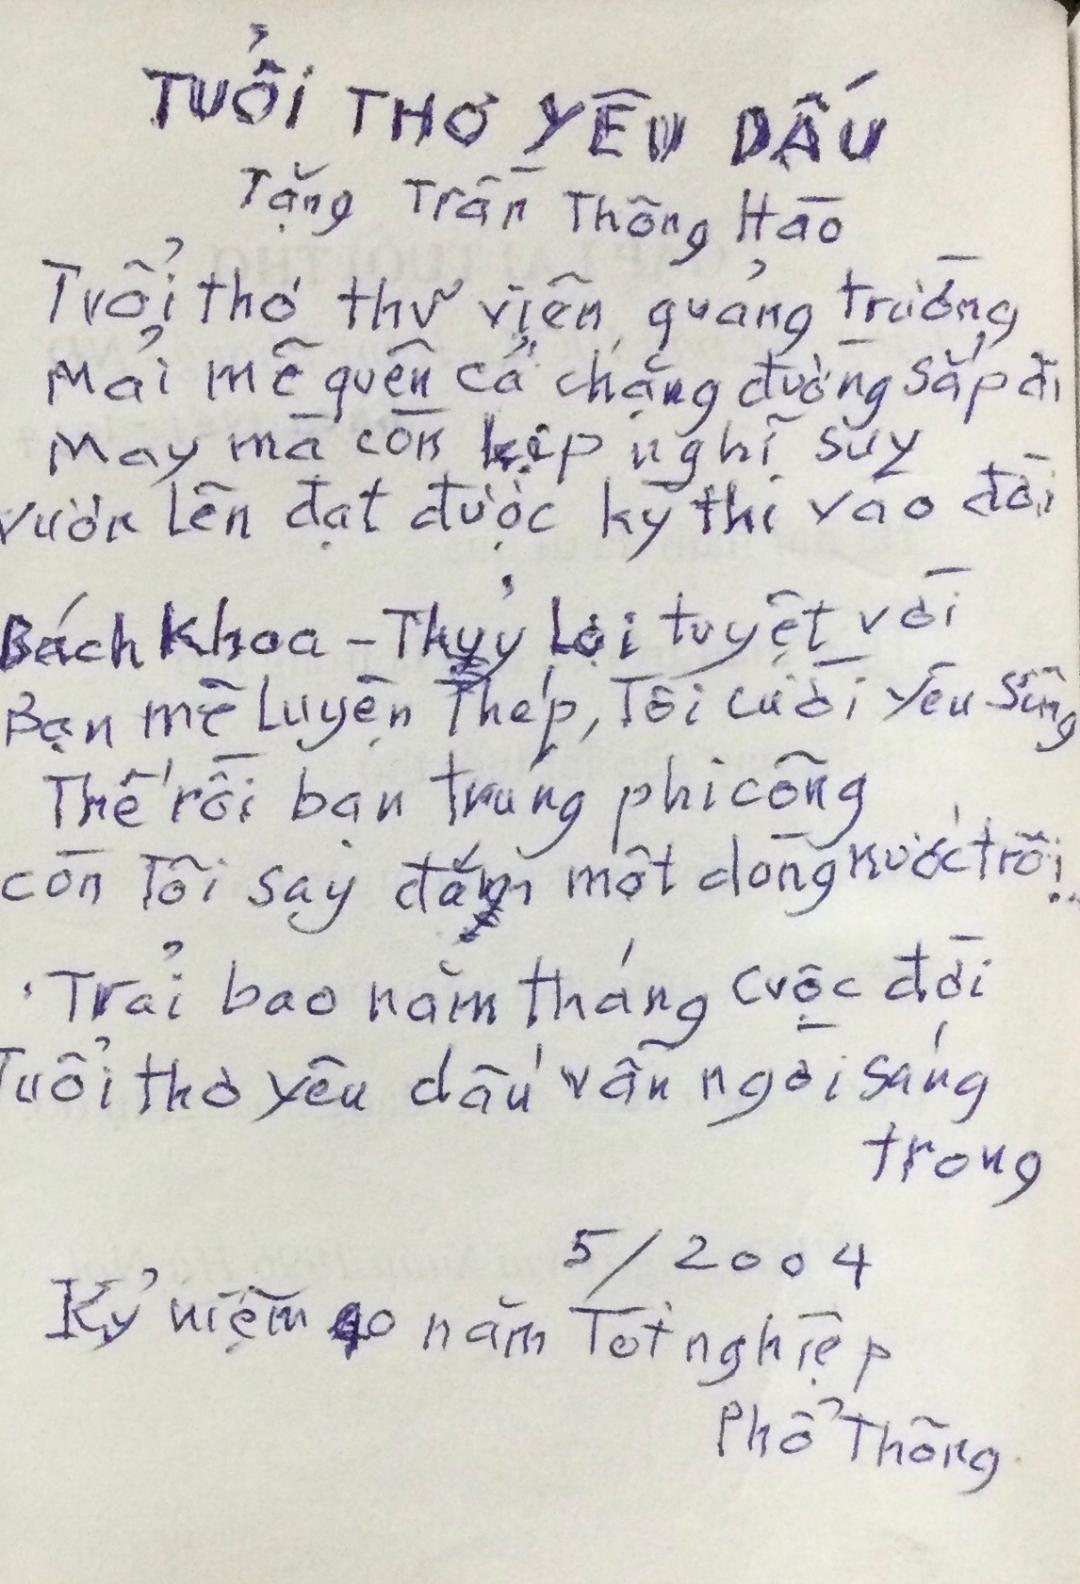 TUỔI THƠ YÊU DẤU
Tặng Trần Thông Hào
Tuổi thơ thư viện, quảng trường
Mải mê quên cả chặng đường sắp đi
May mà còn kịp nghĩ suy
Vươn lên đạt được kỳ thi vào đời
Bách Khoa - Thủy Lợi tuyệt vời
Bạn mê Luyện Thép, Tôi cười yêu Sông
Thế rồi bạn trúng phi công
Còn Tôi say đắm một dòng nước trôi..
Trải bao năm tháng cuộc đời
Tuổi thơ yêu dấu vẫn ngời sáng
trong
5/2004
Kỷ niệm 40 năm Tốt nghiệp
Phổ Thông